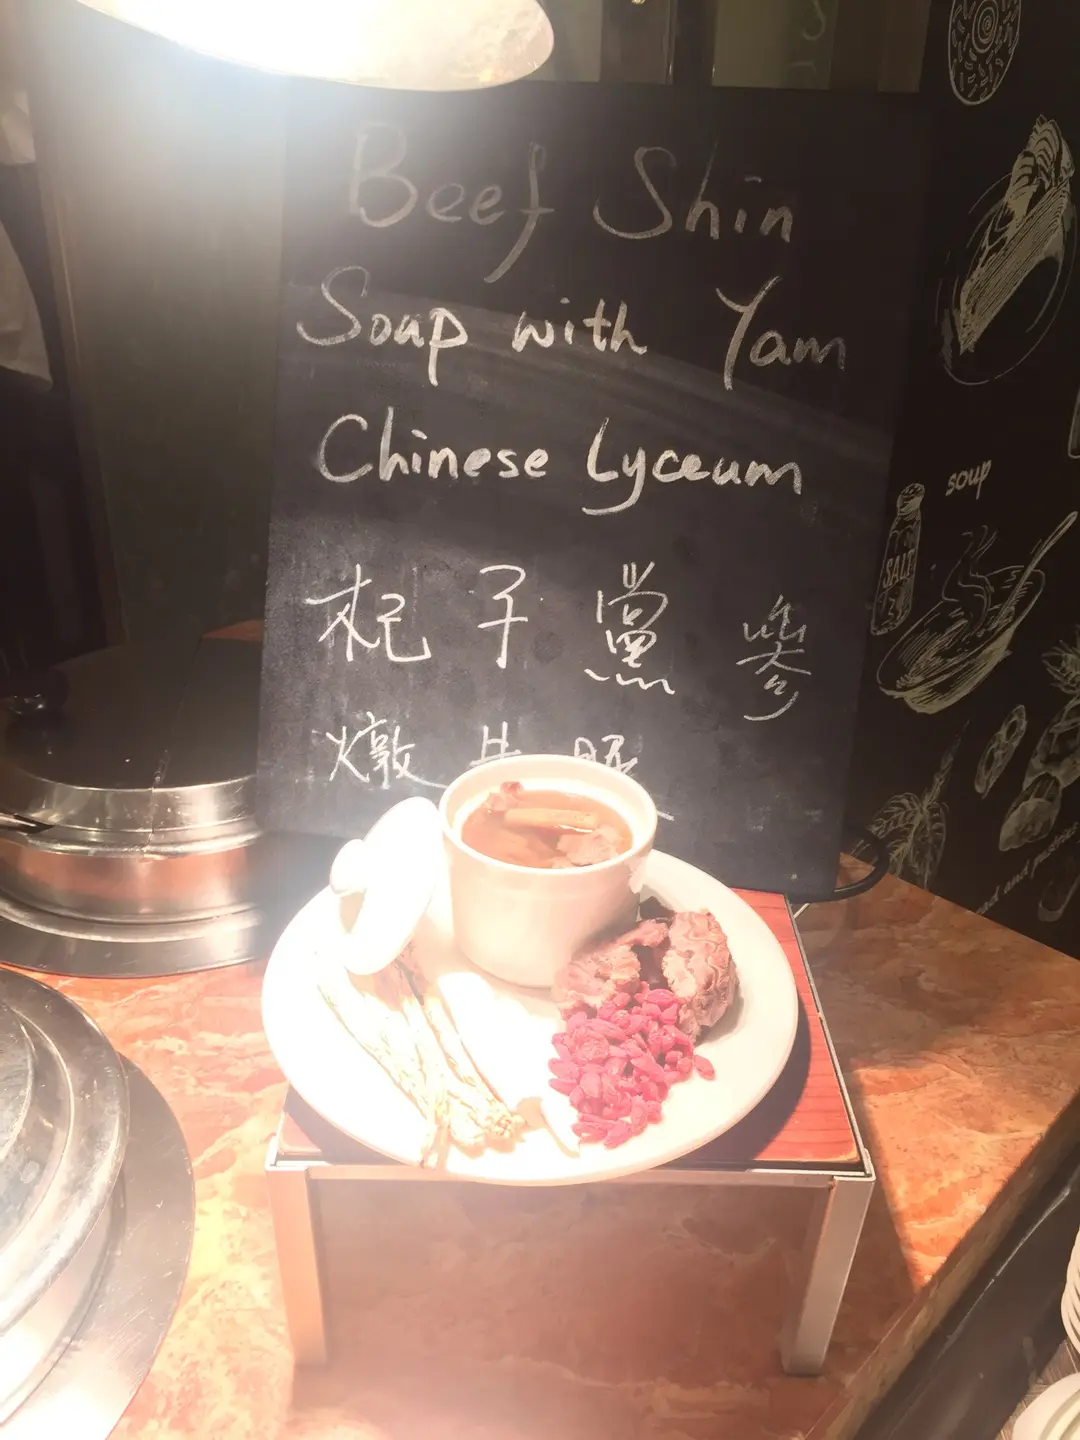 Beef Shin
Soup with Yam
Chinese Lyceum
杞子黨參
燉牛
soup
SALT
and